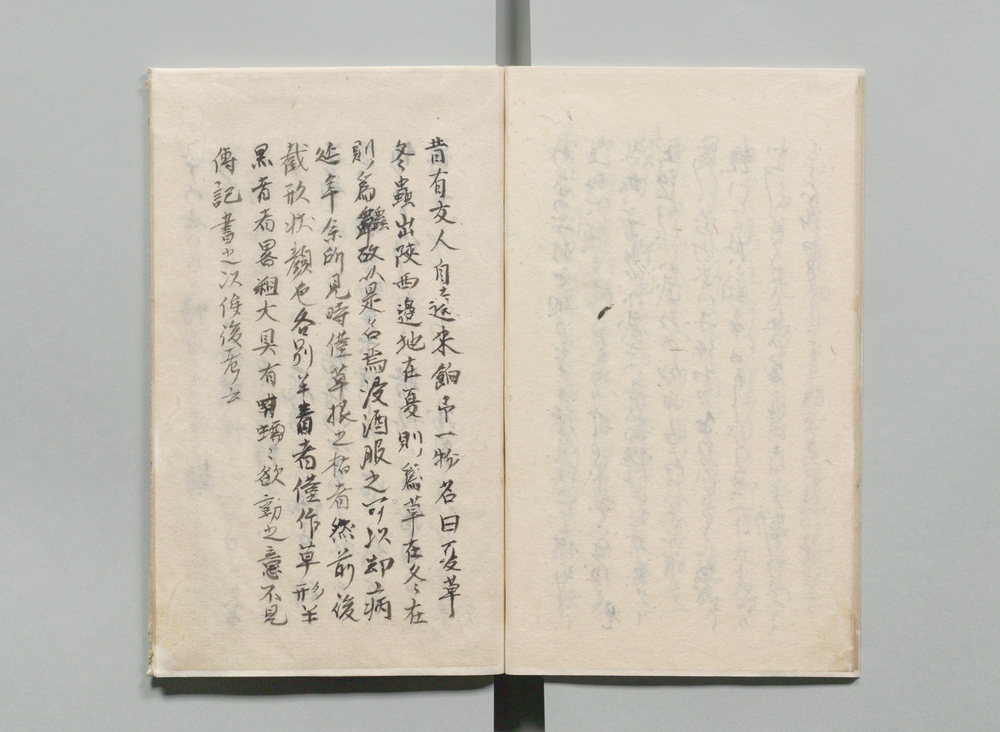 昔有友人自遠来餉予一物名曰夏草
冬蟲出陝西邊地在夏則為草在冬在
則為蟲故以是名焉浸酒服之可以却病
延年余所見時僅草根之枯者然前後
截形狀顔色各別半青者僅作草形半
黒者畧粗大具有蠕々欲動之意不見
傳記書之以俟後考云